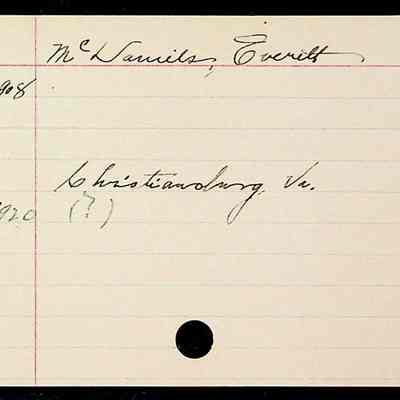 McDaniels, Everett
908
Christiansburg, Va.
920 (?)